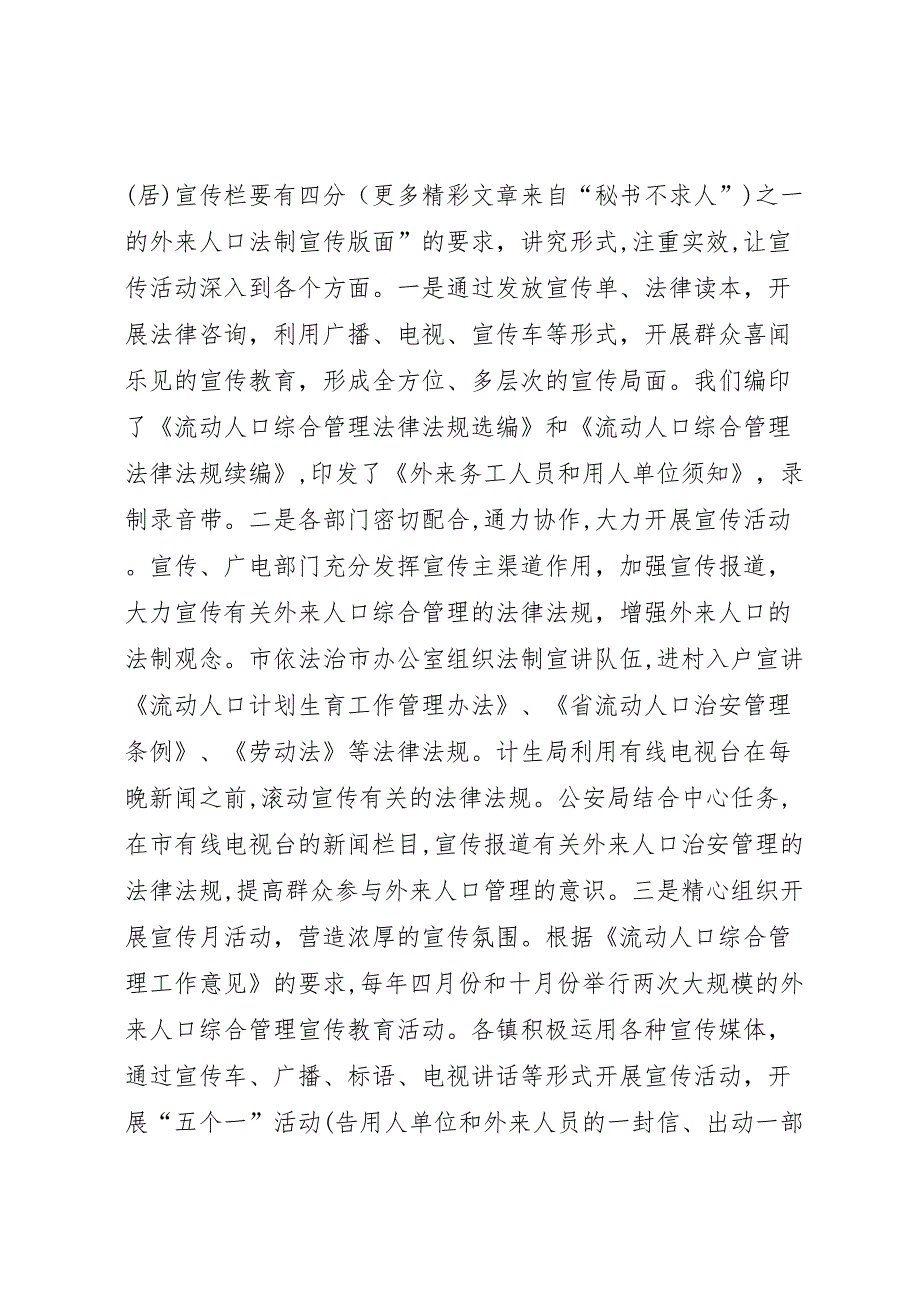 (居)宣传栏要有四分（更多精彩文章来自“秘书不求人”)之一
的外来人口法制宣传版面”的要求，讲究形式,注重实效,让宣
传活动深入到各个方面。一是通过发放宣传单、法律读本，开
展法律咨询，利用广播、电视、宣传车等形式，开展群众喜闻
乐见的宣传教育，形成全方位、多层次的宣传局面。我们编印
了《流动人口综合管理法律法规选编》和《流动人口综合管理
法律法规续编》,印发了《外来务工人员和用人单位须知》，录
制录音带。二是各部门密切配合,通力协作,大力开展宣传活动
。宣传、广电部门充分发挥宣传主渠道作用，加强宣传报道，
大力宣传有关外来人口综合管理的法律法规，增强外来人口的
法制观念。市依法治市办公室组织法制宣讲队伍,进村入户宣讲
《流动人口计划生育工作管理办法》、《省流动人口治安管理
条例》、《劳动法》等法律法规。计生局利用有线电视台在每
晚新闻之前,滚动宣传有关的法律法规。公安局结合中心任务,
在市有线电视台的新闻栏目,宣传报道有关外来人口治安管理的
法律法规,提高群众参与外来人口管理的意识。三是精心组织开
展宣传月活动，营造浓厚的宣传氛围。根据《流动人口综合管
理工作意见》的要求,每年四月份和十月份举行两次大规模的外
来人口综合管理宣传教育活动。各镇积极运用各种宣传媒体，
通过宣传车、广播、标语、电视讲话等形式开展宣传活动，开
展“五个一”活动(告用人单位和外来人员的一封信、出动一部